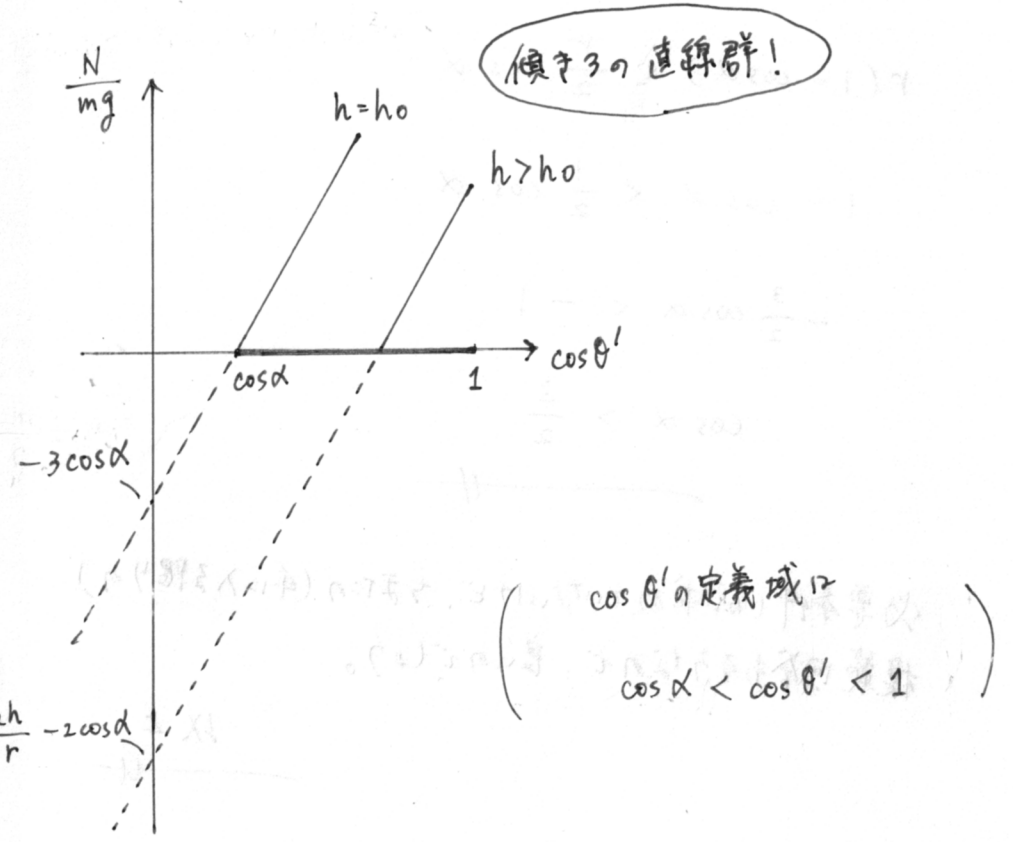 傾き3の直線群!
N/mg
h=h0
h>h0
cosθ'
cosα
1
-3cosα
h/r -2cosα
cosθ'の定義域は
cosα < cosθ' < 1